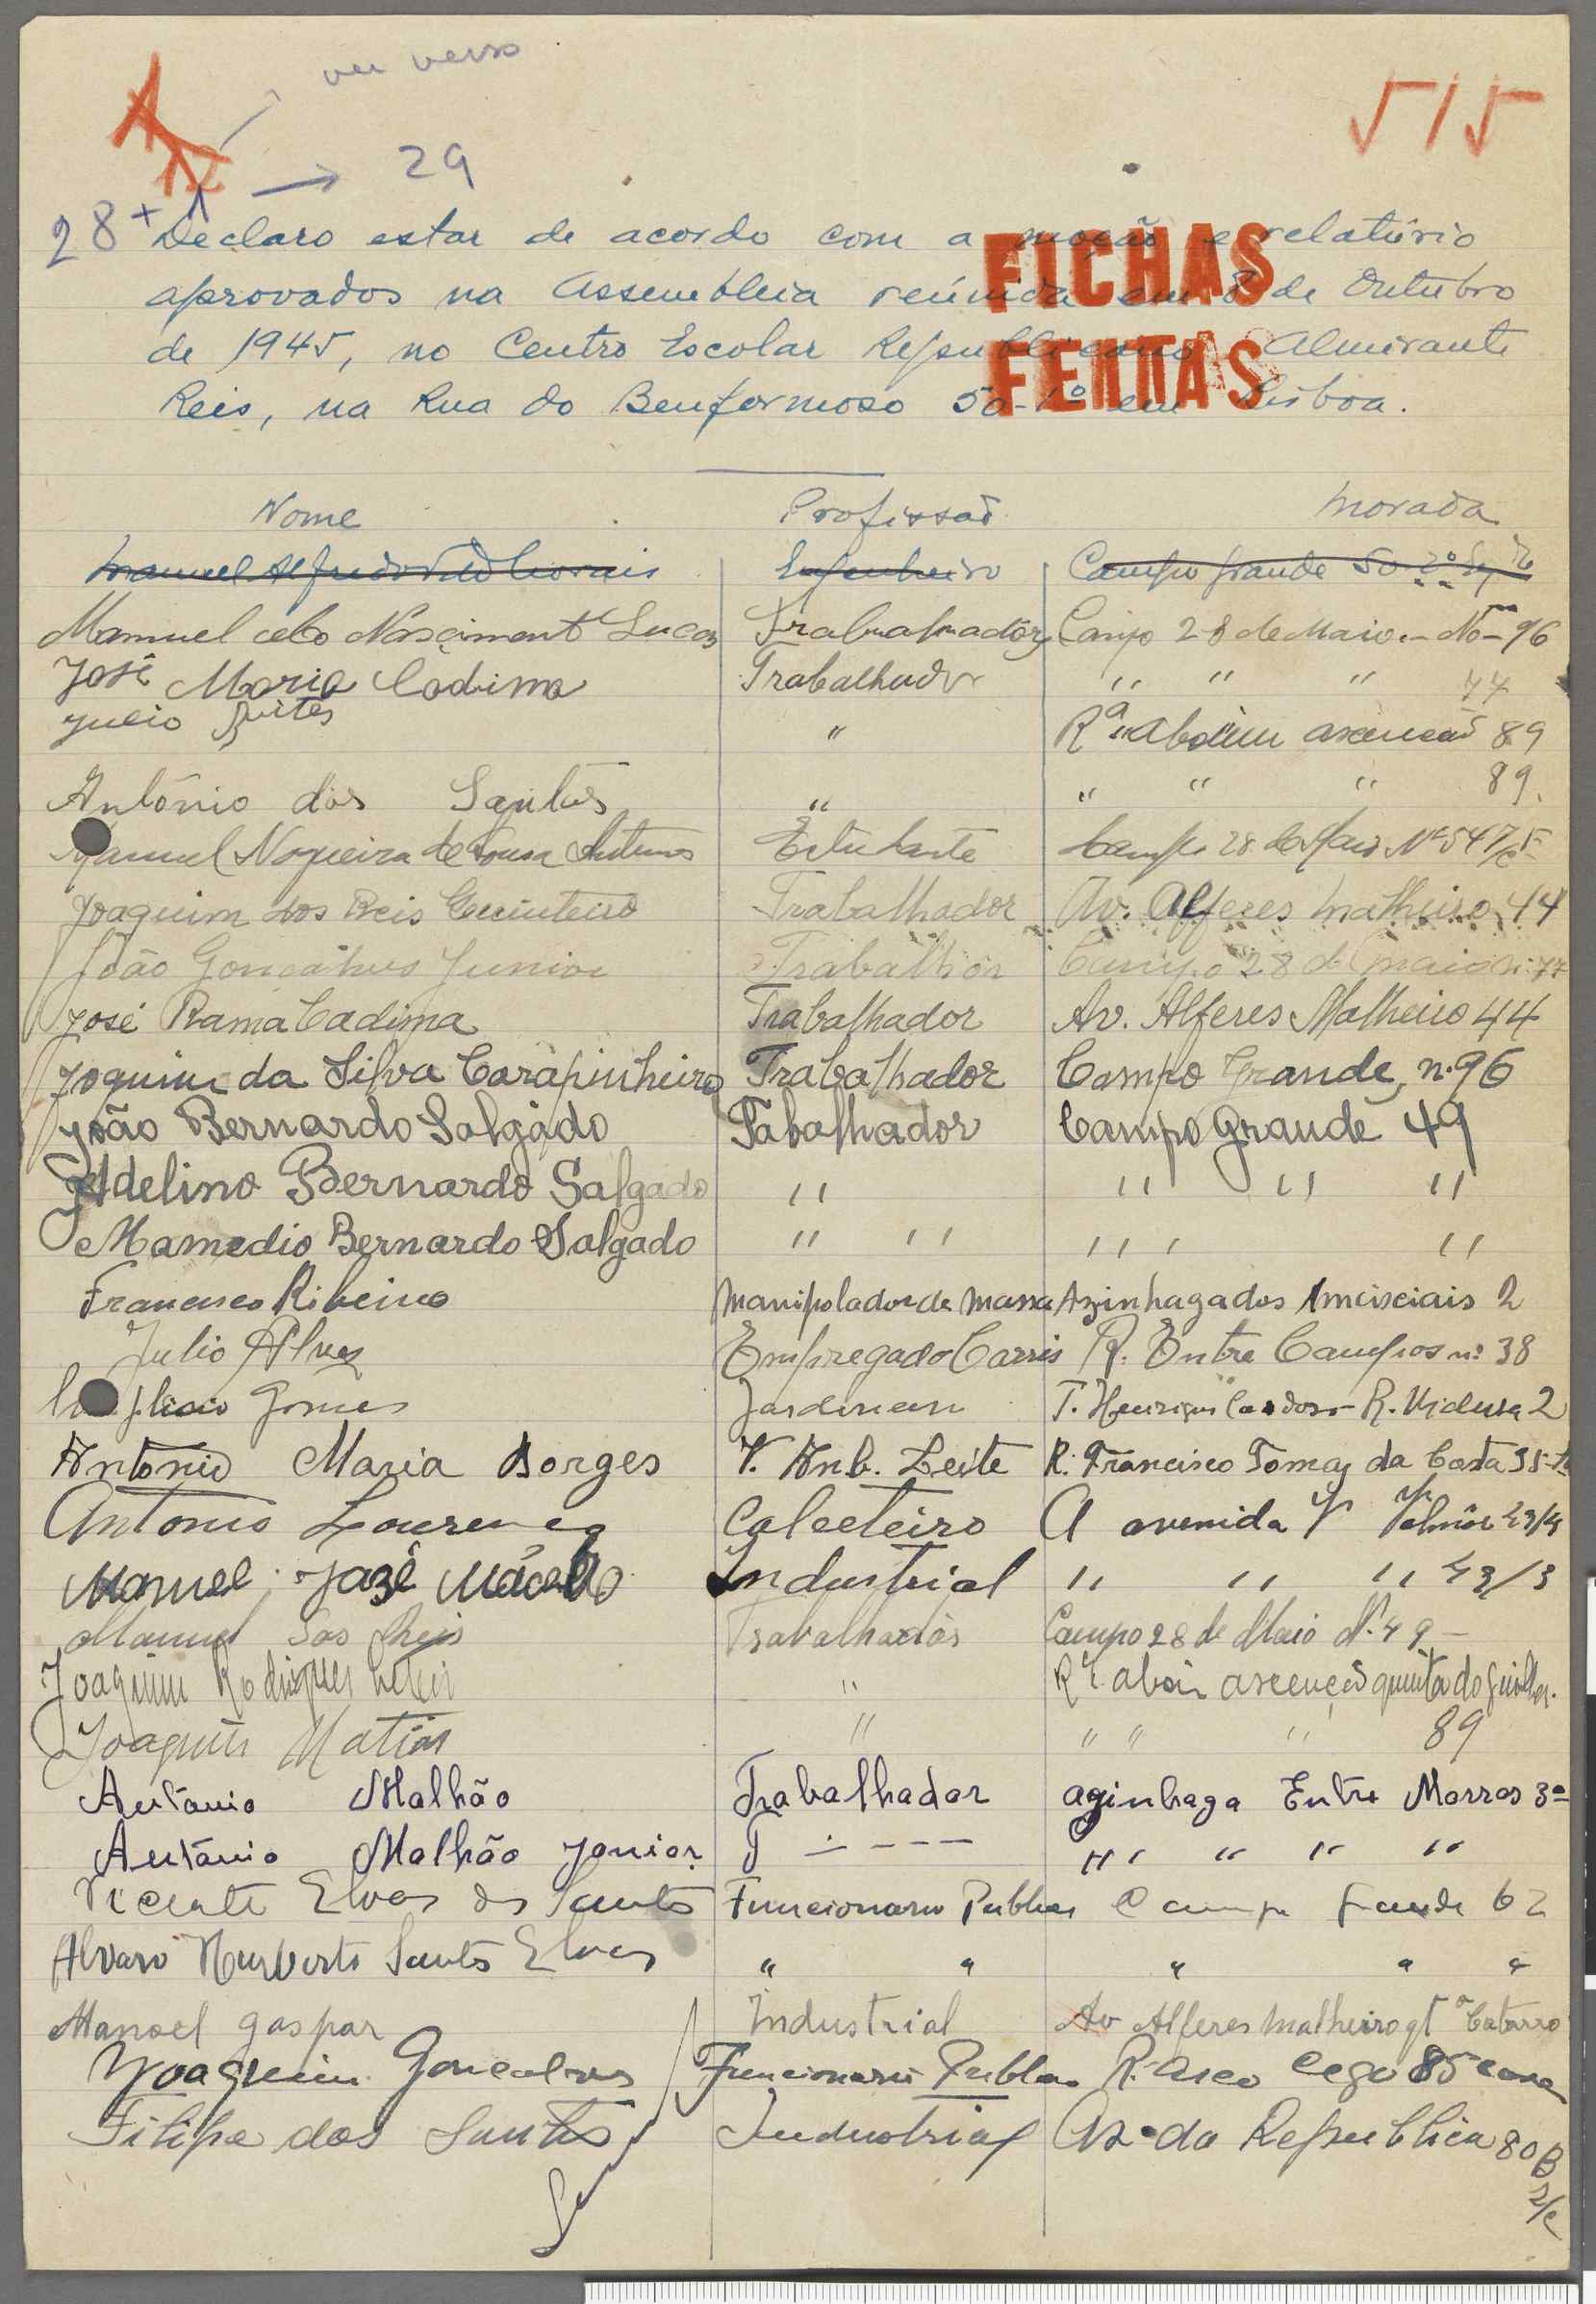 ver verso
515
29
28 + Declaro estar de acordo com a moção e relatório
aprovados na Assembleia reúnida em 8 de Outubro
de 1945, no Centro Escolar Republicano Almirante
Reis, na Rua do Benformoso 50-1º em Lisboa.
FICHAS
FEITAS
Nome Profissão Morada
Manuel Alfredo Morais Engenheiro Campo Grande 50 2º
Manuel do Nasciment Lucas Campo 28 de Maio - No 96
José Maria Cadima Trabalhador " " " 77
Julio " Rª Aboim ascenção 89
António dos Santos " " " " 89.
Manuel Nogueira de Sousa Antunes Estudante Campo 28 de Maio Nº 54
Joaquim dos Reis Trabalhador Av. Alferes Malheiro 44
João Gonçalves Junior Campo 28 de maio n: 77
José Rama Cadima Trabalhador Av. Alferes Malheiro 44
Joquim da Silva Carapinheiro Trabalhador Campo Grande, n.96
João Bernardo Salgado Tabalhador Campo Grande 49
Adelino Bernardo Salgado " " " "
Mamedio Bernardo Salgado " " " " "
Francisco Ribeiro Manipolador de massa Azinhagados 2
Julio Alves Empregado Carris R. Entre Campos nº 38
Gomes T. Henrique Cardoso - R. 2
António Maria Borges V. Anb. Leite R. Francisco Tomaz da Costa 35
Antonio Lourenço Calceteiro A avenida
Manuel José Industrial " " " 43/3
Manuel dos Reis Campo 28 de Maio Nº 49 -
Joaquim Rodrigues " Rª aboim ascenção quinta do
Joaquim Matias " " " " 89
António Malhão Trabalhador aginhaga Entre Morros 3
António Malhão Junior T - - - - " " " "
Vicente Elvas dos Santos Funcionario Publico Campo Grande 62
Alvaro Humberto Santos Elvas " " " " "
Manoel gaspar Industrial Av Alferes Malheiro qtª Catarro
Joaquim Gonçalves Funcionario Publico R. Arco Cego 85 casa
Filipe dos Santos Industrial Av. da Republica 80 B
r/c